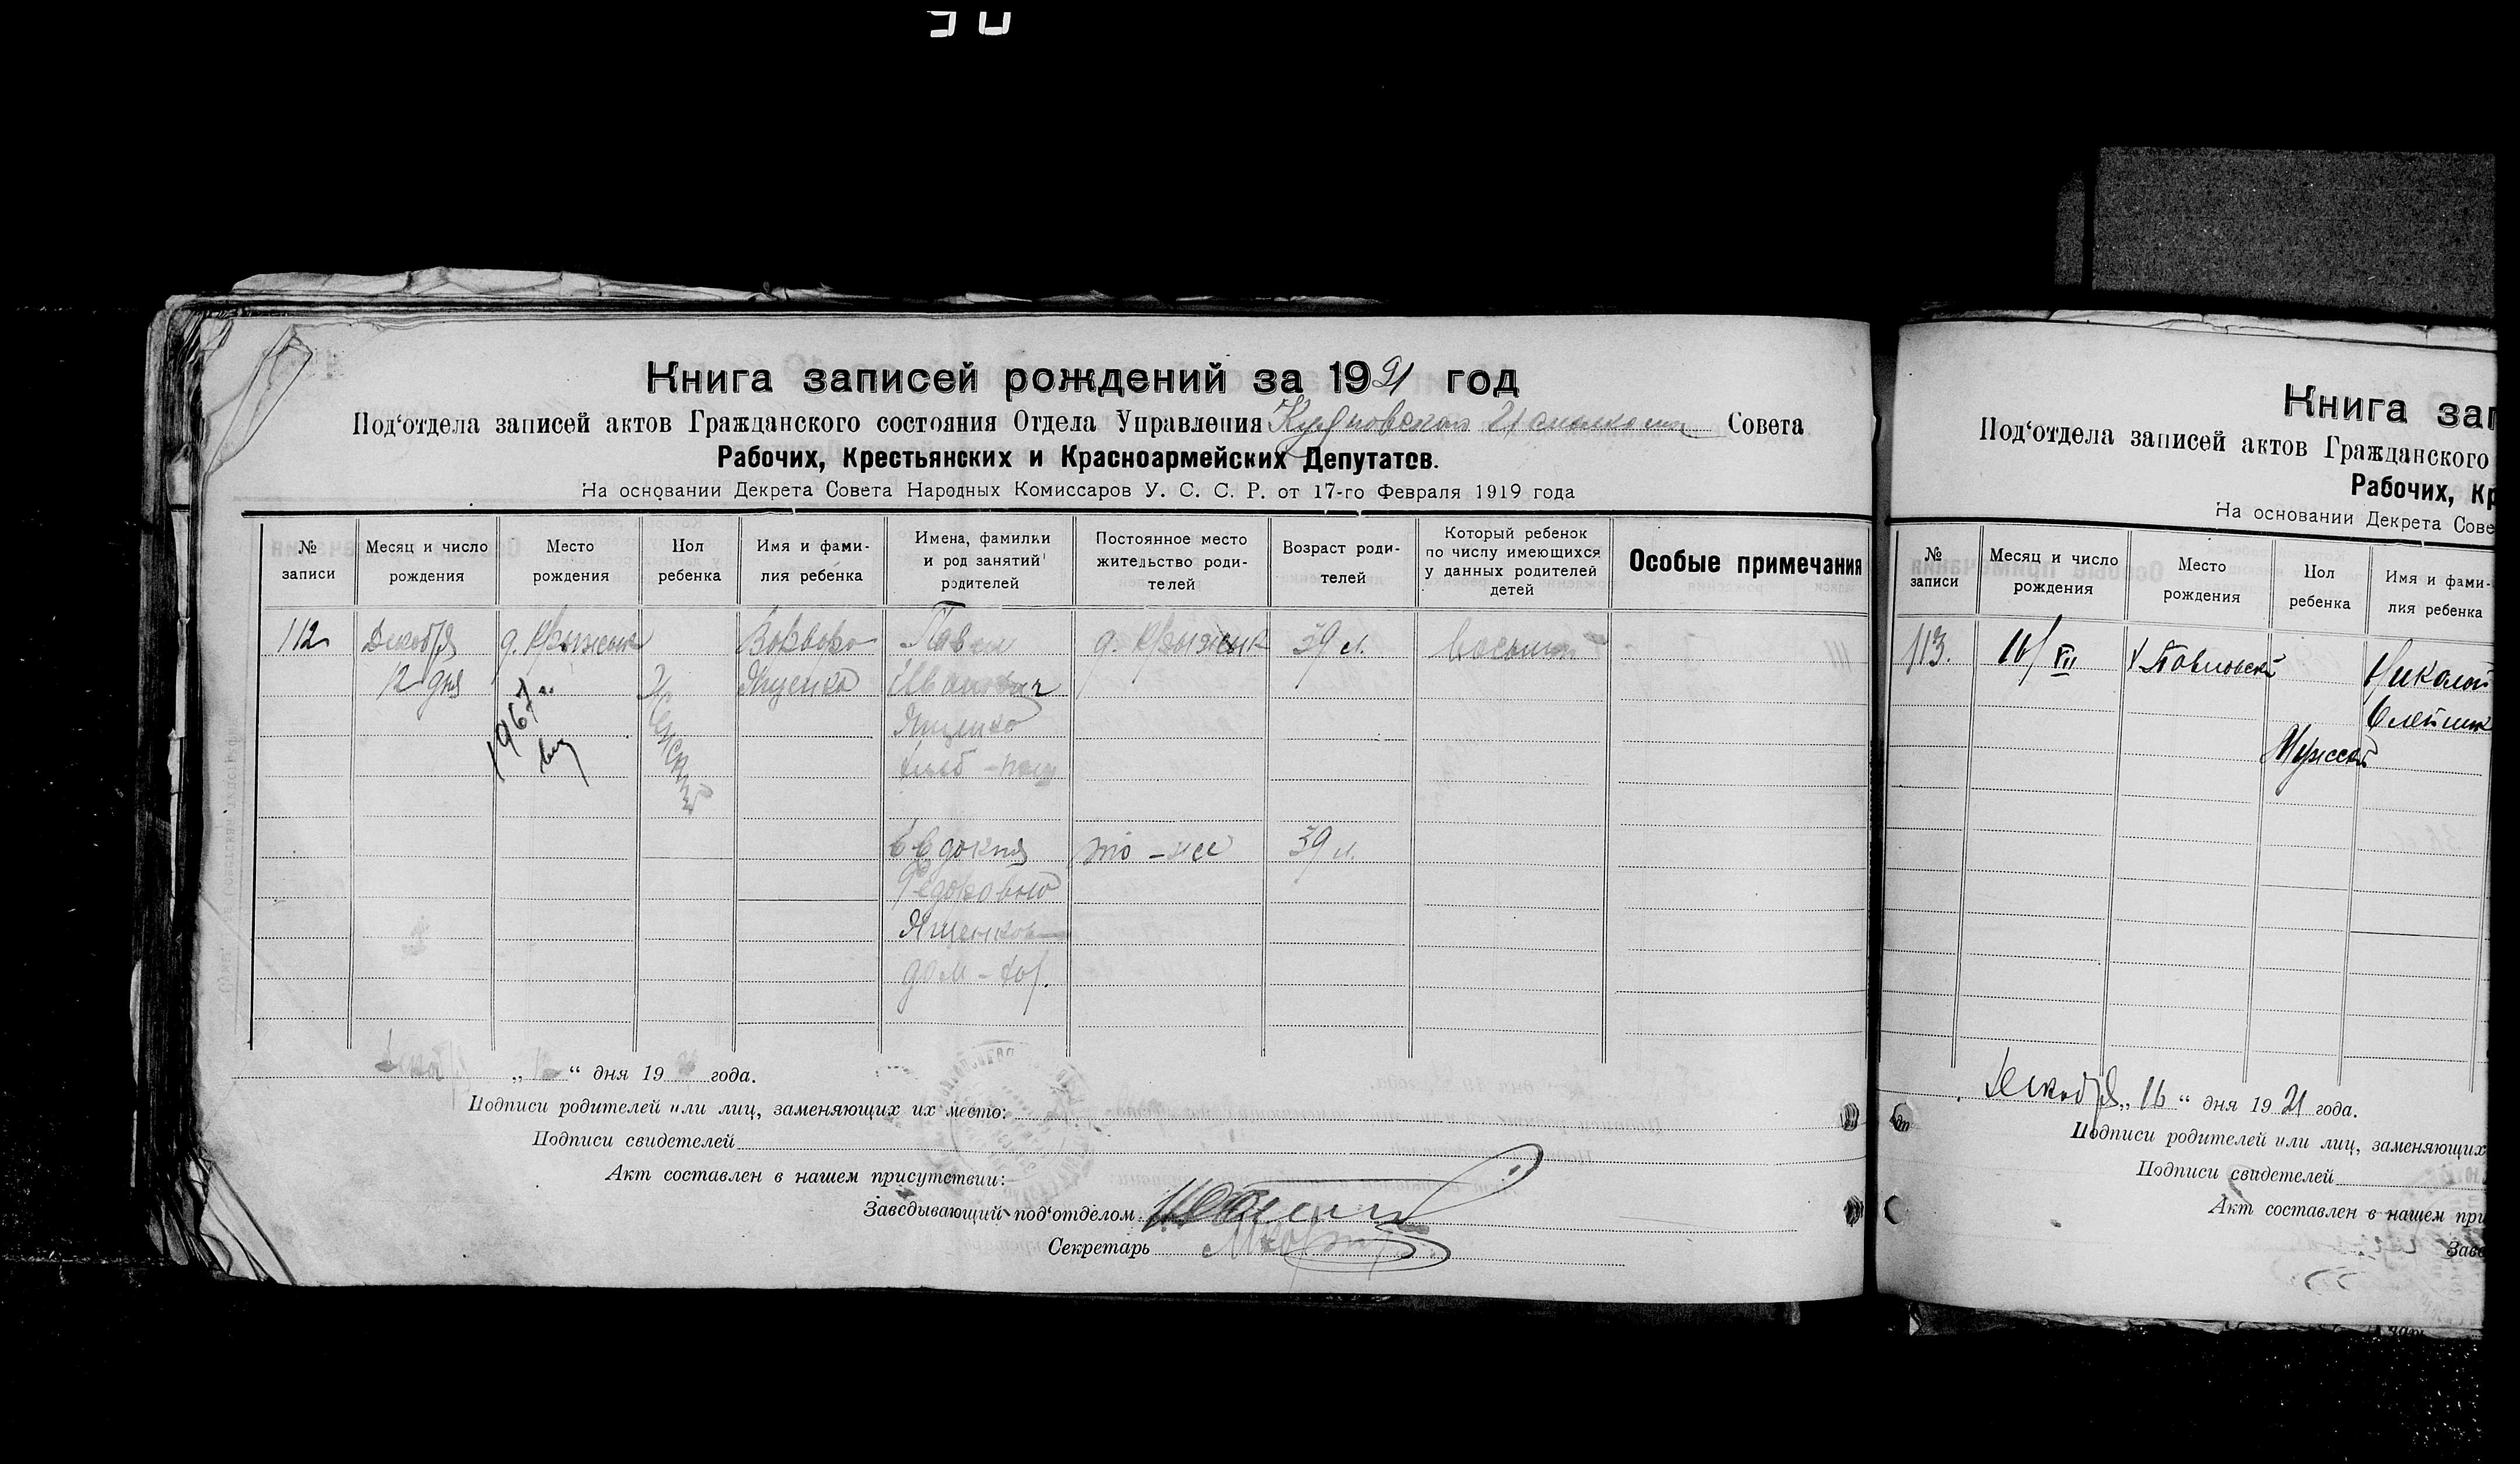 Книга записей рождений за 1921 год
Под‘отдела записей актов Гражданского состояния Отдела Управления Совета
Рабочих, Крестьянских и Красноармейских Депутатов.
На основании Декрета Совета Народных Комиссаров У. С. С. Р. от 17-го Февраля 1919 года
№ записи
Месяц и число рождения
Место рождения
Пол ребенка
Имя и фами- лия ребенка
Имена, фамилки и род занятий родителей
Постоянное место жительство роди- телей
Возраст роди- телей
Который ребенок по числу имеющихся у данных родителей детей
Особые примечания
112 Декабря Варвара Павел 39 л.
12 дня Ященко Иванович
Женский
Ященко
хлеб-паш
1967
Евдокия то-же 39 л.
Федоровна
Ященкова
дом-хоз.
„12“ дня 19 года.
Подписи родителей или лиц, заменяющих их место:
Подписи свидетелей
Акт составлен в нашем присутствии:
Заведывающий под‘отделом
Секретарь
Книга зап
Под‘отдела записей актов Гражданского
Рабочих, Кр
На основании Декрета Сове
№ записи
Месяц и число рождения
Место рождения
Пол ребенка
Имя и фами- лия ребенка
113. 16/XII Николай
Олейник
Мужской
Декабря „16“ дня 1921 года.
Подписи родителей или лиц, заменяющих
Подписи свидетелей
Акт составлен в нашем при
Заве